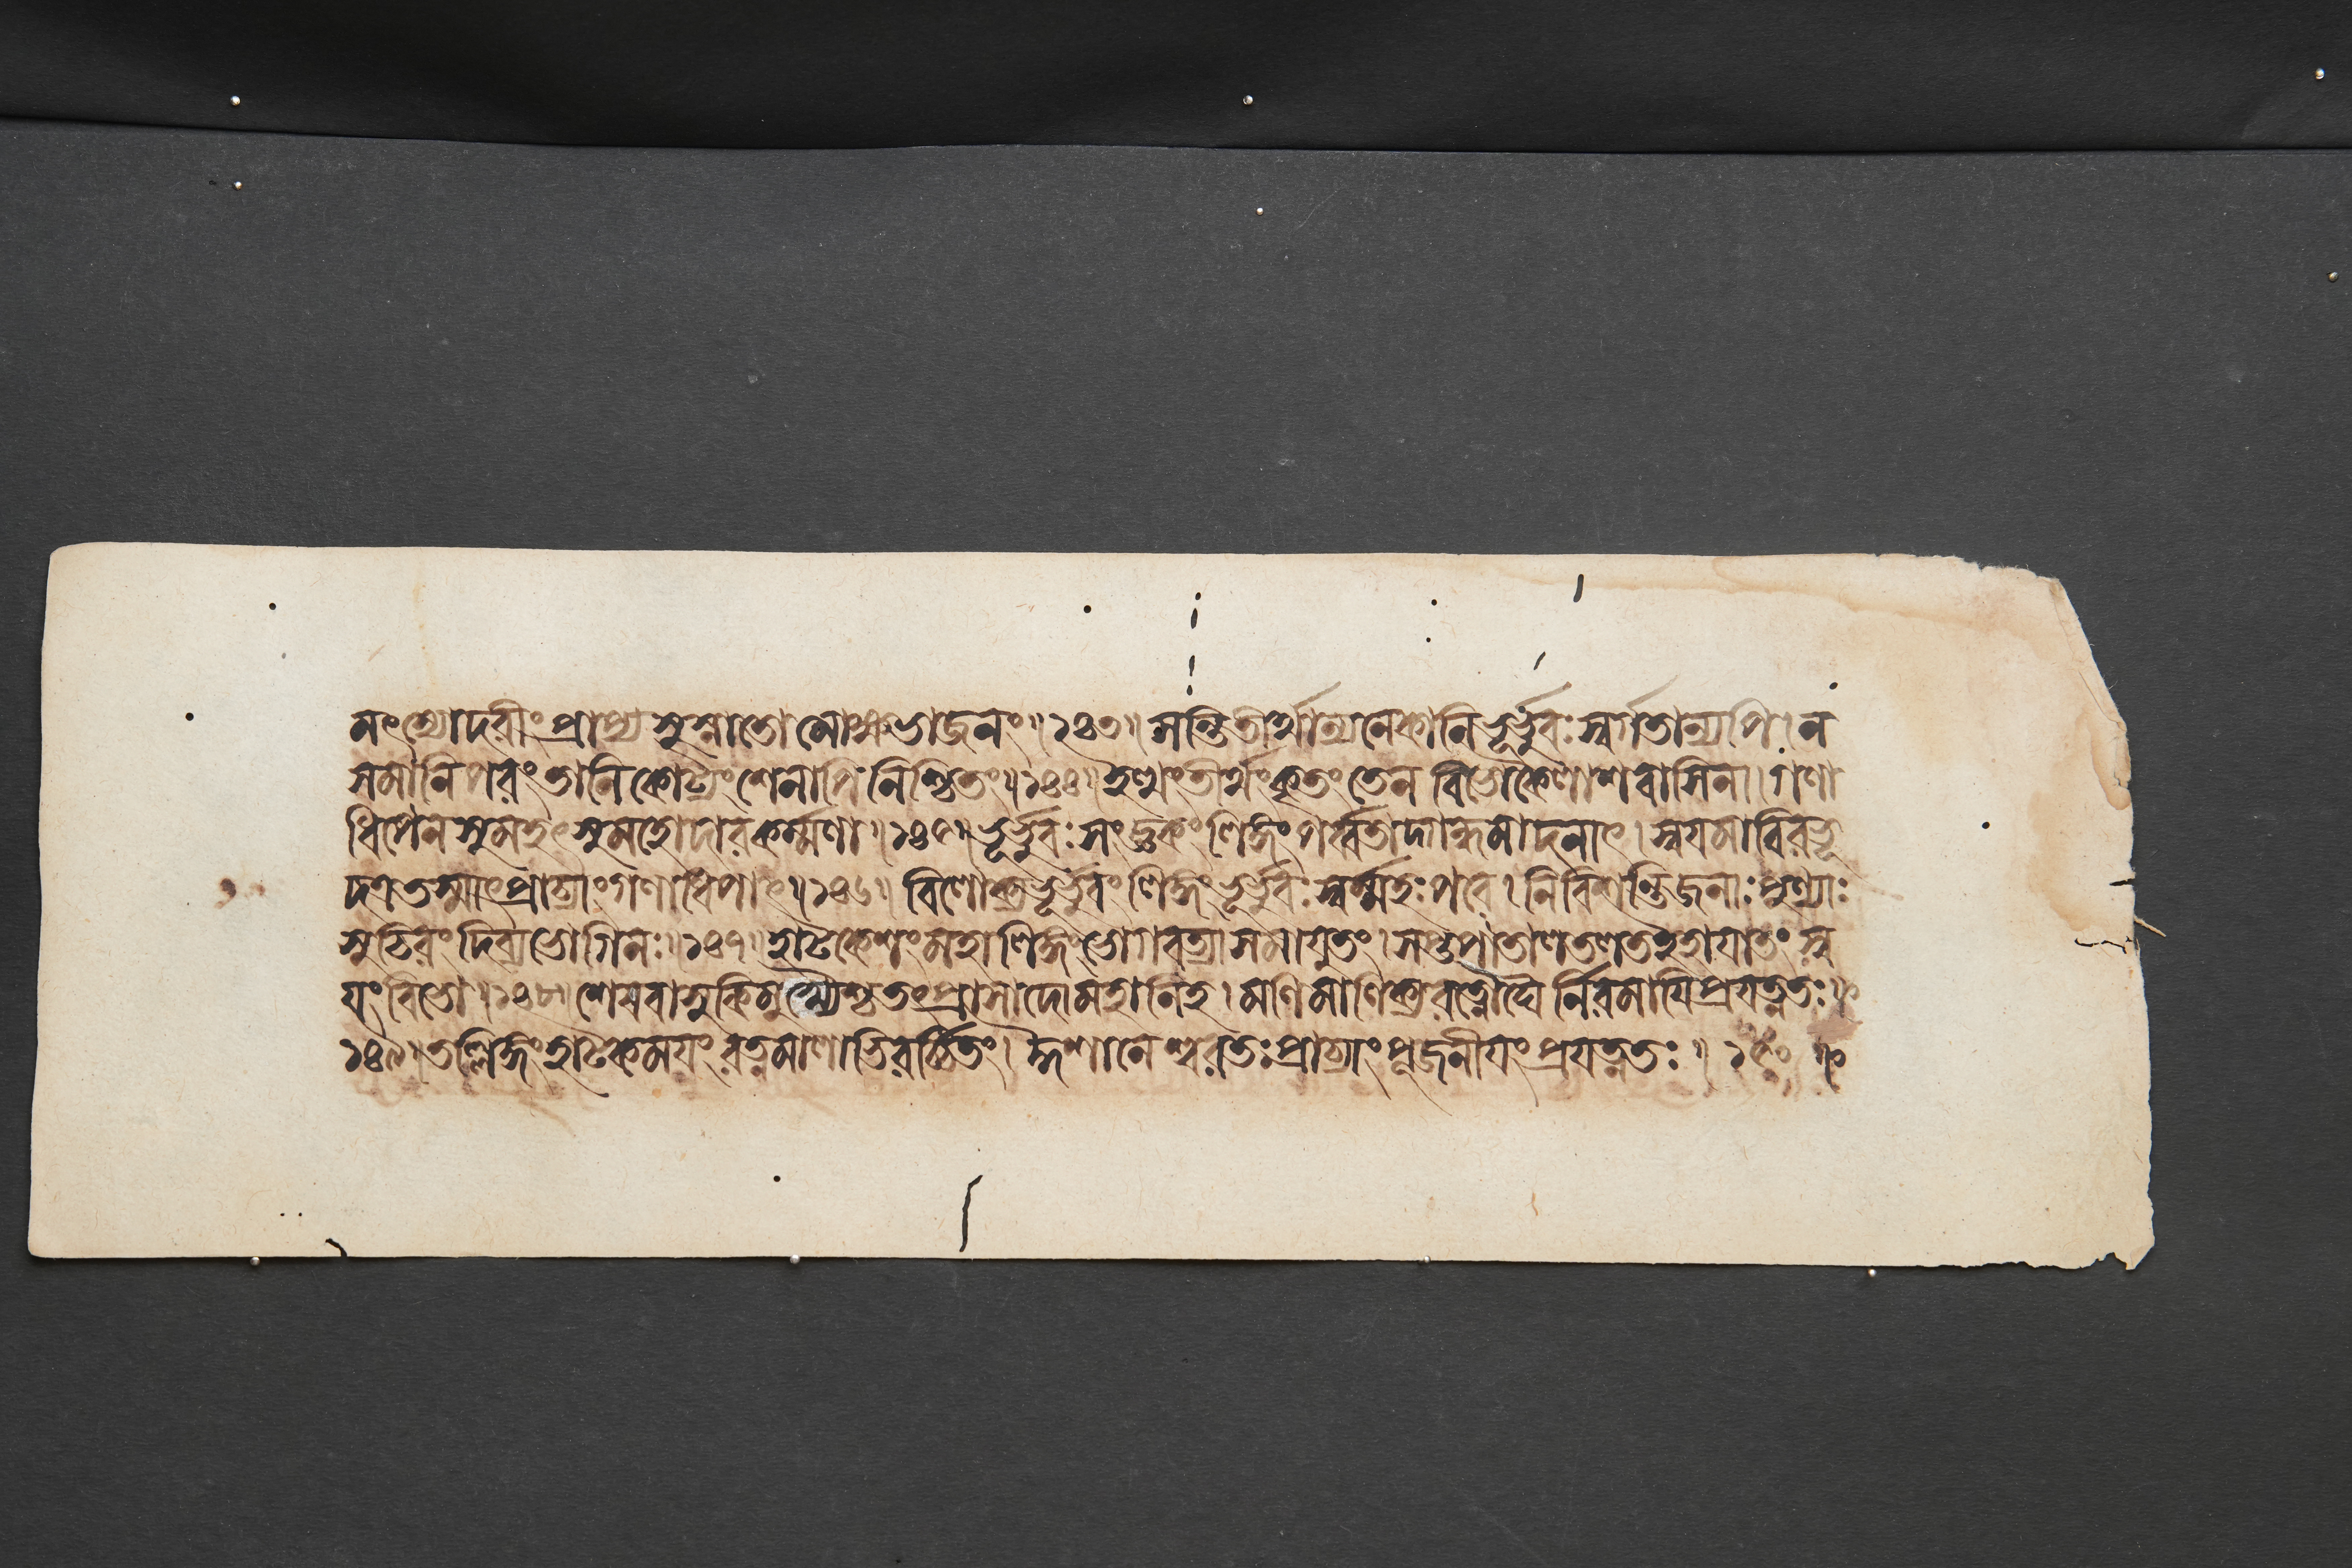 মৎস্যোদরীং প্রাপ্য সুস্নাতো মোক্ষভাজনং॥১৪৩॥ সন্তি তীর্থান্যনেকানি ভূর্ভুবঃস্বর্গতান্যপি। ন
সমানি পরং তানি কোট্যংশেনাপি নিশ্চিতং॥১৪৪॥ ইত্থং তীর্থং কৃতং তেন বিভো কৈলাশবাসিনা। গণা
ধিপেন সুমহৎ সুমহোদারকর্ম্মণা॥১৪৫॥ ভূর্ভুবঃসংজ্ঞকং লিঙ্গং পর্ব্বতাদ্গন্ধমাদনাৎ। স্বযমাবিরভূ
দত্র তস্মাৎ প্রাচ্যাং গণাধিপাৎ॥১৪৬॥ বিলোক্য ভূর্ভুবং লিঙ্গং ভূর্ভুবঃস্বর্ম্মহঃপরে। নিবিশন্তি জনাঃ পুণ্যাঃ
সুচিরং দিব্যভোগিনঃ॥১৪৭॥ হাটকেশং মহালিঙ্গং ভোগবত্যা সমাযুতং। সপ্তপাতালতলত ইহাযাতং স্ব
যং বিভো॥১৪৮॥ শেষবাসুকিমুখ্যৈশ্চ তৎপ্রাসাদো মহানিহ। মণিমাণিক্যরত্নৌঘৈর্নিরমাযি প্রযত্নতঃ॥
১৪৯॥ তল্লিঙ্গং হাটকময়ং রত্নমালাভিরর্চ্চিতং। ঈশানেশ্বরতঃ প্রাচ্যাং পূজনীযং প্রযত্নতঃ॥ ১৫০॥